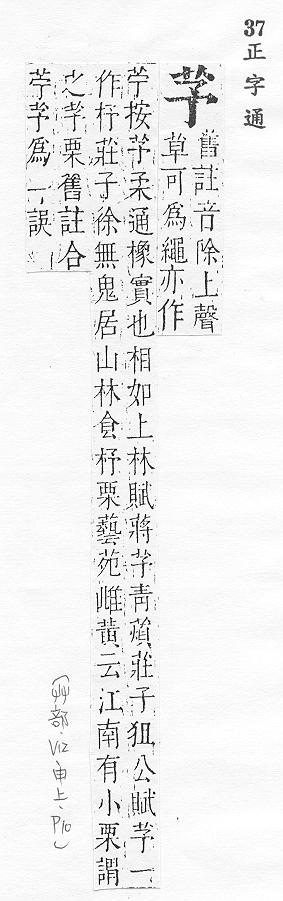 37正字通
芧
舊註音除上聲
草可爲繩亦作
苧按芧柔通橡實也相如上林賦蔣芧青薠莊子狙公賦芧一
作杼莊子徐無鬼居山林食杼栗藝苑雌黃云江南有小栗謂
之芧栗舊註合
苧芧爲一誤
(艸部·V12·申上·P10)